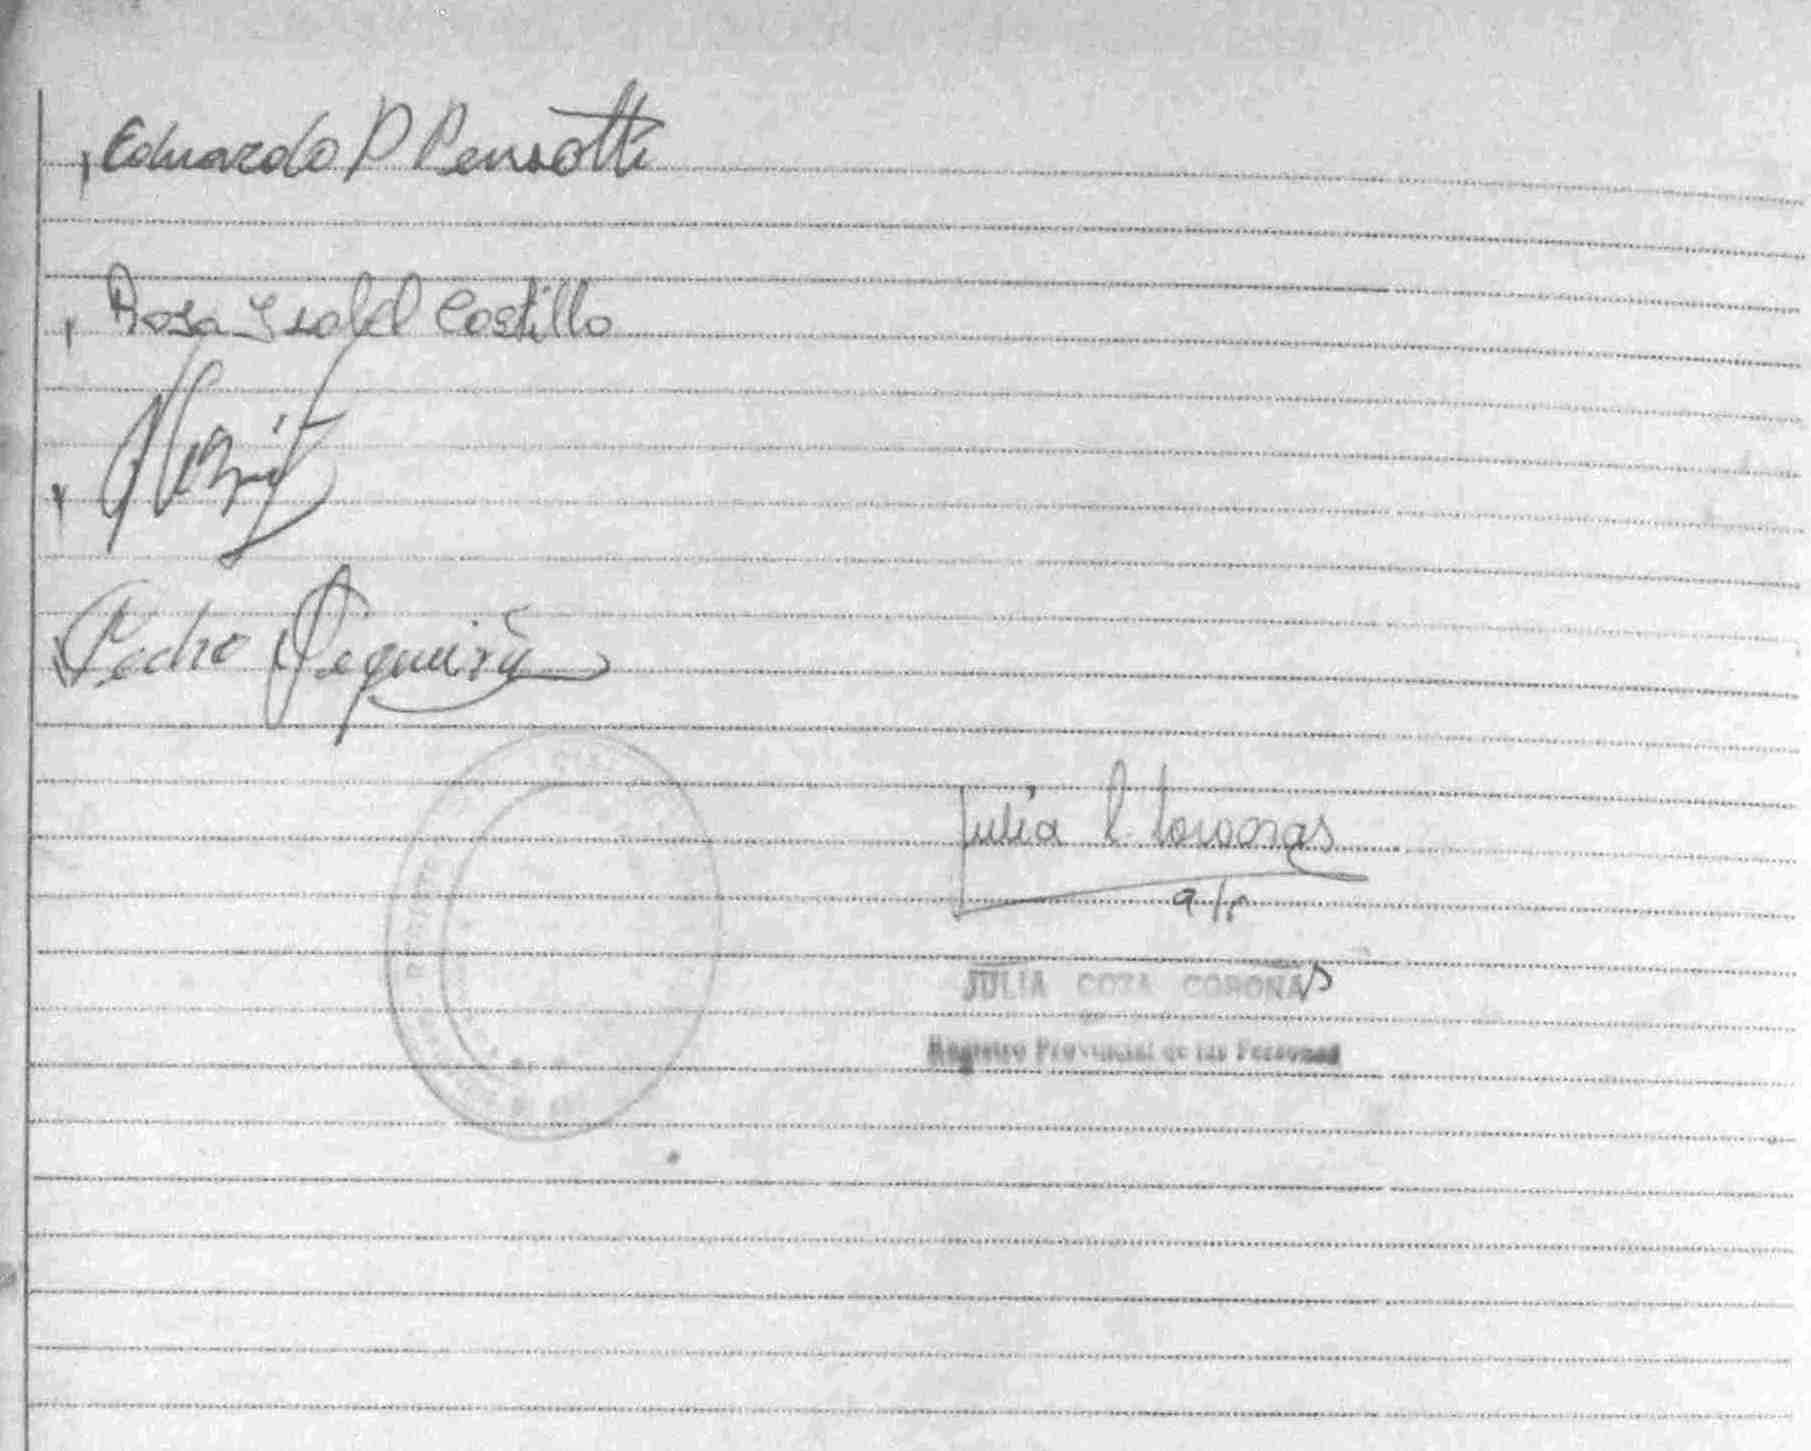 Eduardo P Pensotti
Rosa Isabel Castillo
Pedro Sequeira
Julia C. Coronas
a/c
JULIA COZA CORONAS
Registro Provincial de las Personas